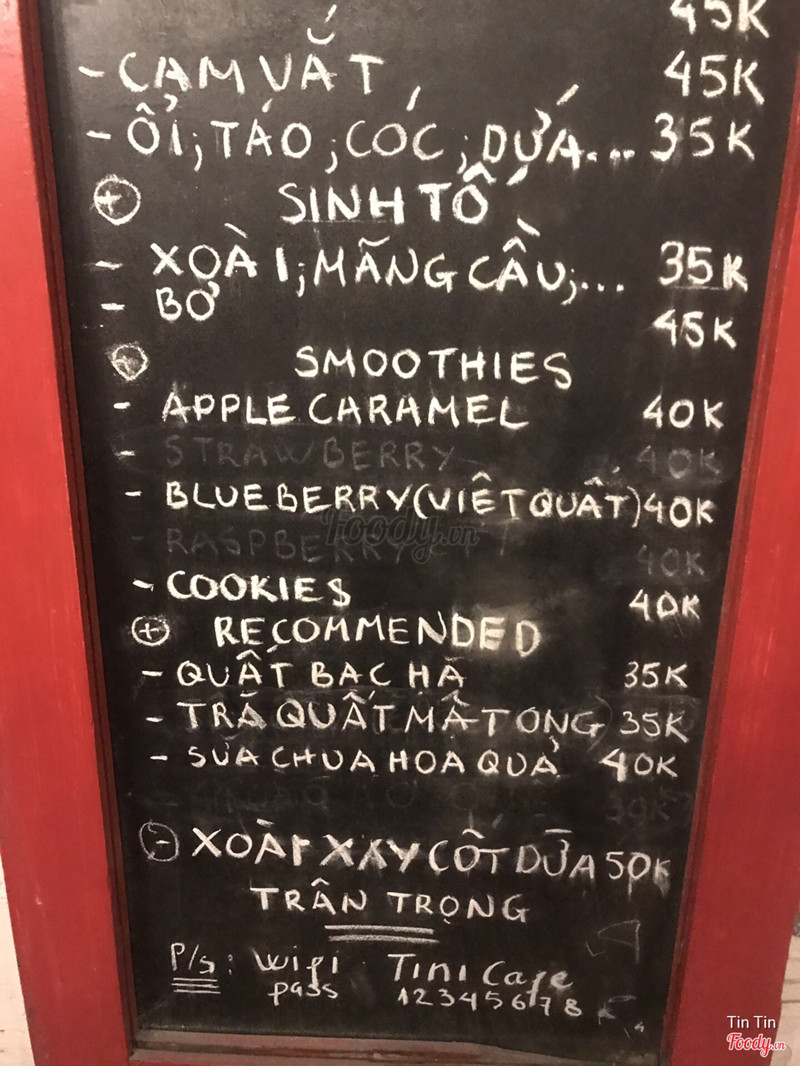 45K
- CAM VẮT 45K
- ỔI; TÁO; CÓC; DỨA... 35K
+ SINH TỐ
- XOÀI; MÃNG CẦU;... 35K
- BƠ 45K
SMOOTHIES
- APPLE CARAMEL 40K
- STRAWBERRY 40K
- BLUEBERRY (VIỆT QUẤT) 40K
- RASPBERRY 40K
- COOKIES 40K
+ RECOMMENDED
- QUẤT BẠC HÀ 35K
- TRÀ QUẤT MẬT ONG 35K
- SỮA CHUA HOA QUẢ 40K
30K
- XOÀI XAY CỐT DỪA 50K
TRÂN TRỌNG
P/s: Wifi Tini Cafe
pass 12345678
Foody.vn
Tin Tin
Foody.vn